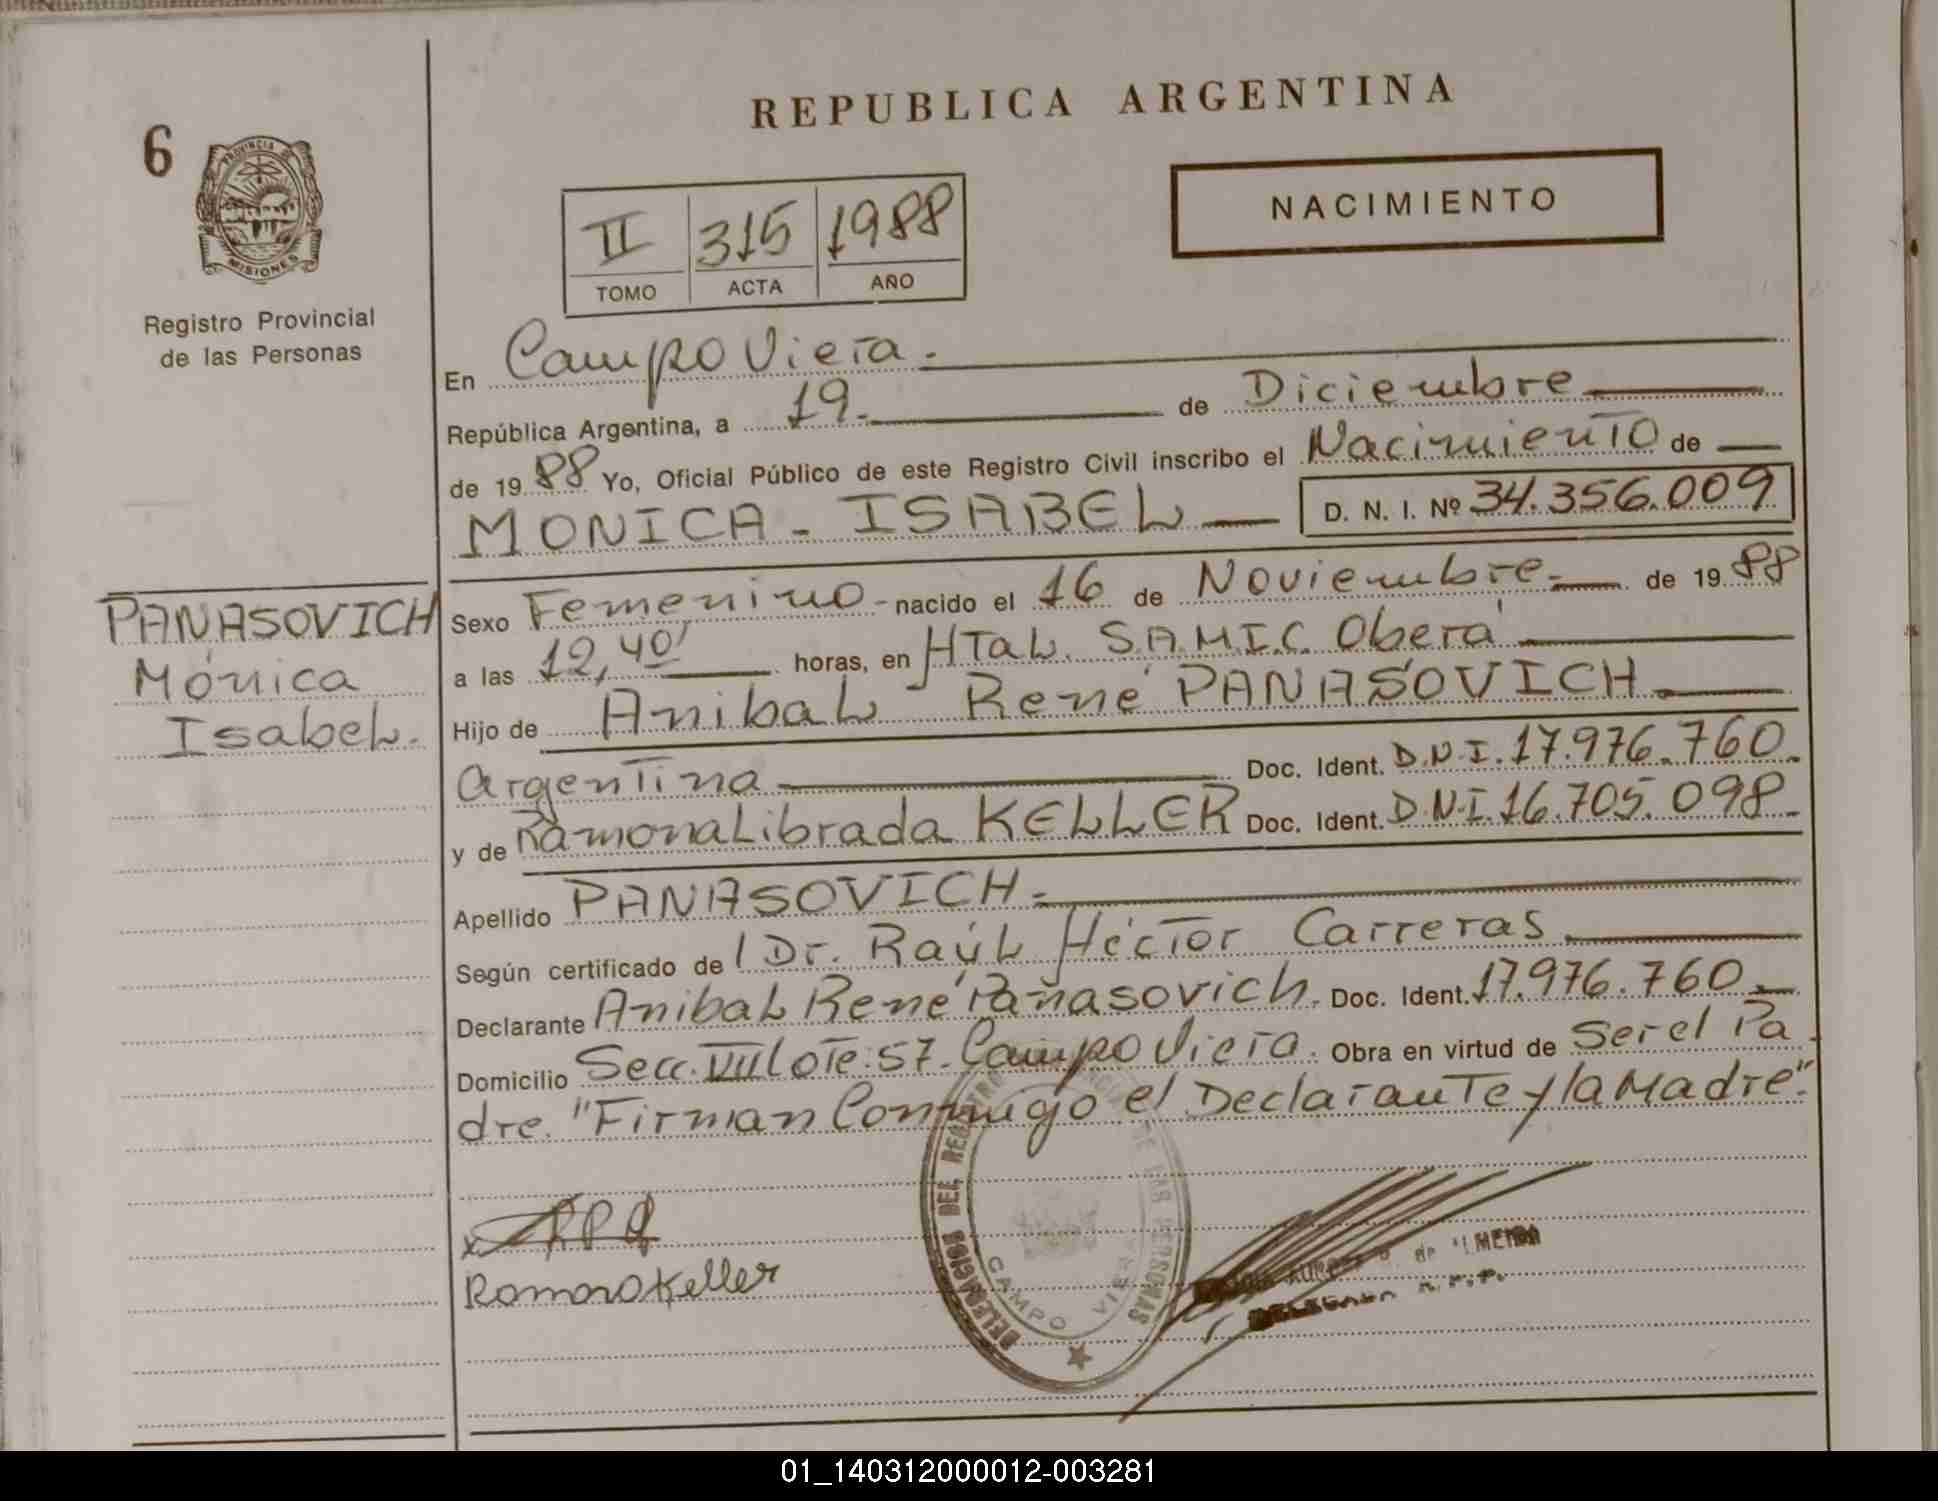 REPUBLICA ARGENTINA
6
PROVINCIA DE
MISIONES
Registro Provincial
de las Personas
NACIMIENTO
II 315 1988
TOMO ACTA AÑO
En Campo Viera.
República Argentina, a 19. de Diciembre
de 1988 Yo, Oficial Público de este Registro Civil inscribo el Nacimiento de
MONICA - ISABEL D. N. I. Nº 34.356.009
PANASOVICH
Mónica
Isabel.
Sexo Femenino - nacido el 16 de Noviembre. de 1988
a las 12,40' horas, en HTal. S.A.M.I.C. Oberá
Hijo de Anibal René PANASOVICH
Argentina Doc. Ident. D.N.I. 17.976.760.
y de Ramona Librada KELLER Doc. Ident. D.N.I. 16.705.098
Apellido PANASOVICH.
Según certificado de Dr. Raúl Héctor Carreras
Declarante Anibal René Panasovich. Doc. Ident. 17.976.760
Domicilio Secc. VIII Lote: 57. Campo Viera. Obra en virtud de Ser el Pa
dre. "Firman Conmigo el Declarante y la Madre".
Ramona Keller
DELEGACION DEL REGISTRO DE LAS PERSONAS
CAMPO VIERA
de ALMEIDA
DELEGADA R.P.P.
01_140312000012-003281